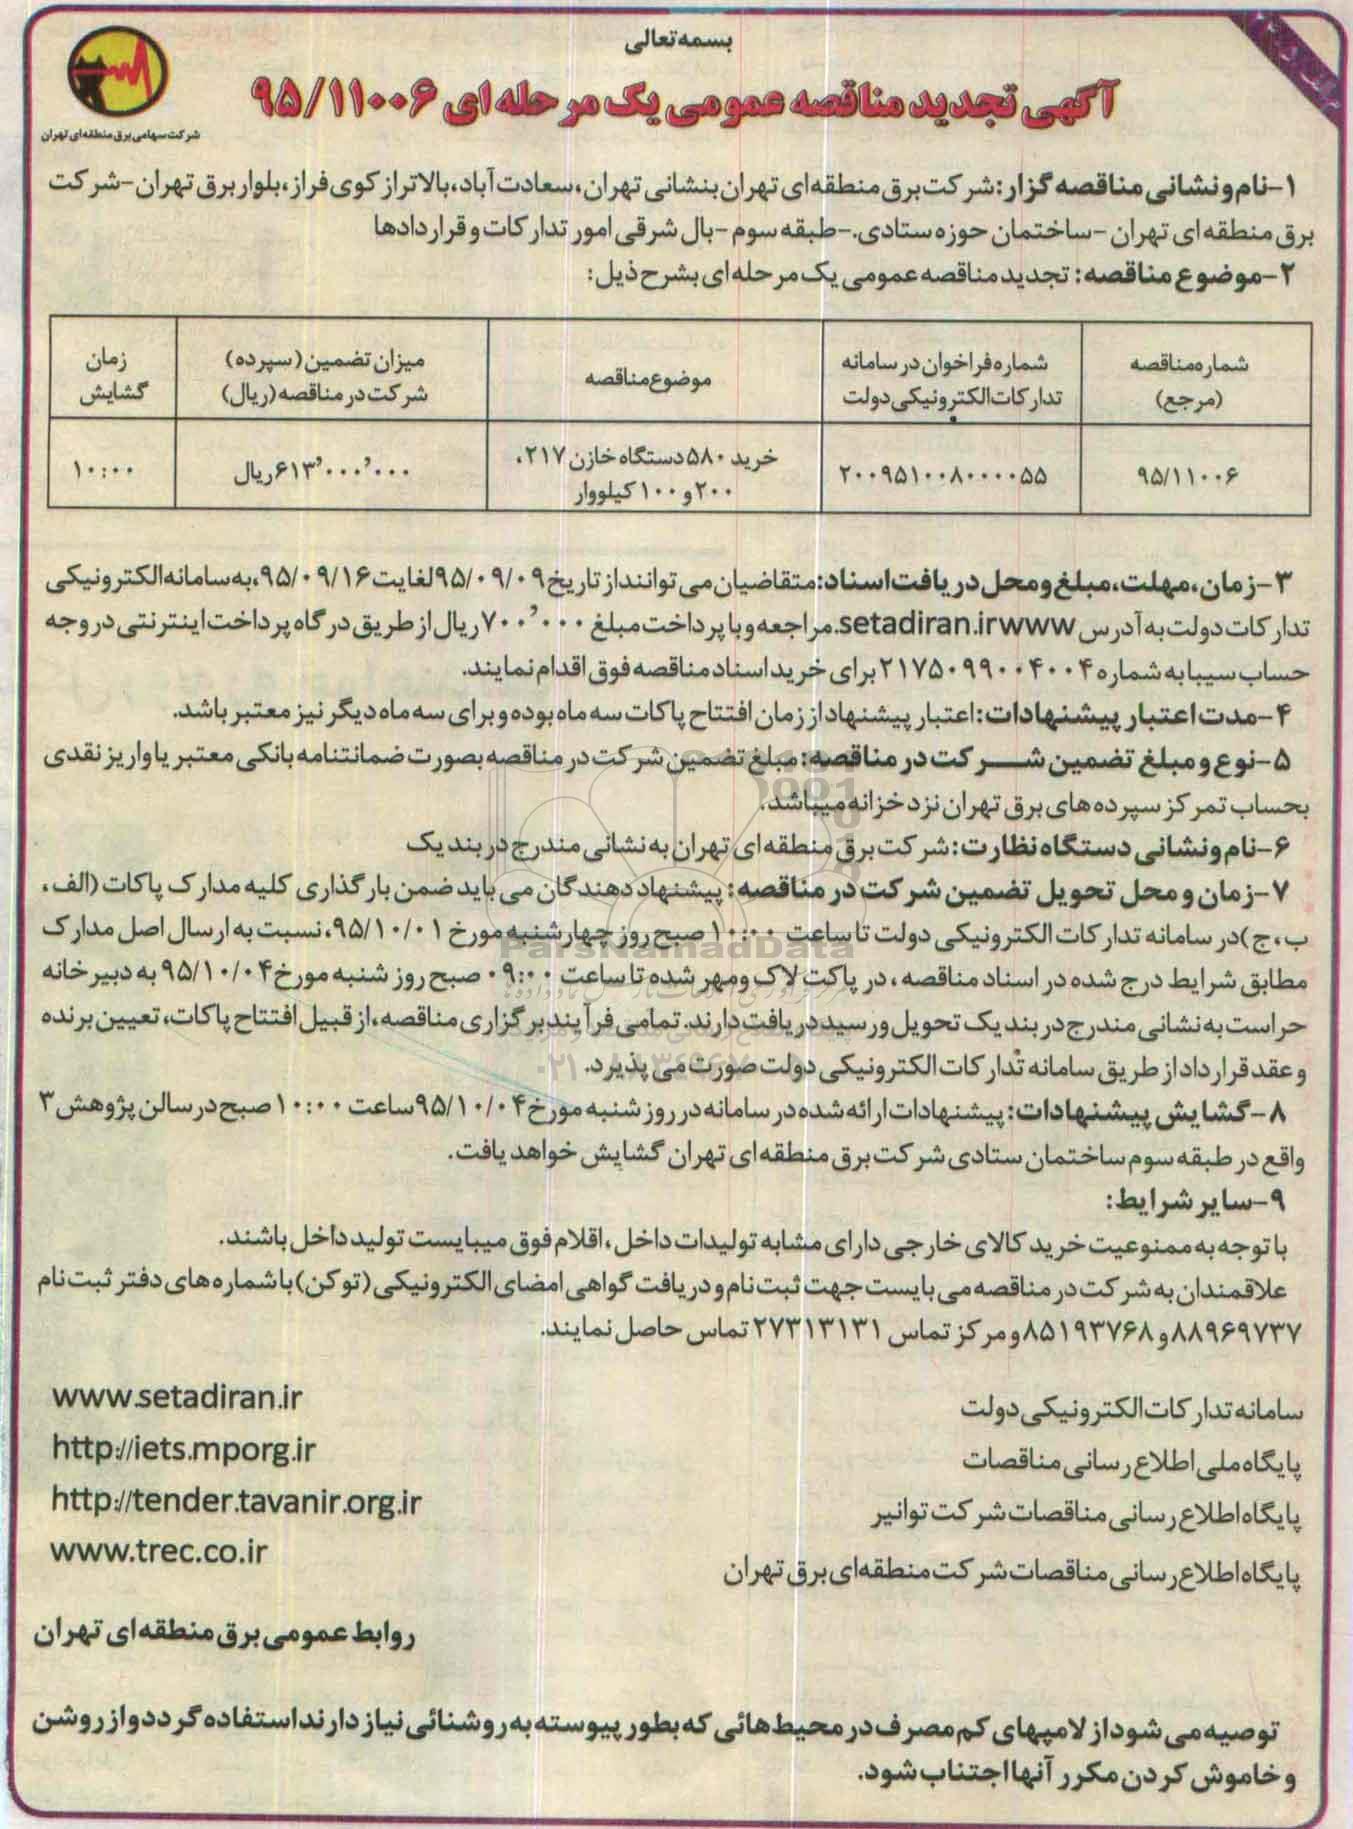 بسمه تعالی
آگهی تجدید مناقصه عمومی یک مرحله ای ۹۵/۱۱۰۰۶
شرکت سهامی برق منطقه ای تهران
۱-نام و نشانی مناقصه گزار: شرکت برق منطقه ای تهران بنشانی تهران، سعادت آباد، بالاتر از کوی فراز، بلوار برق تهران -شرکت
برق منطقه ای تهران -ساختمان حوزه ستادی.-طبقه سوم -بال شرقی امور تدارکات و قراردادها
۲-موضوع مناقصه: تجدید مناقصه عمومی یک مرحله ای بشرح ذیل:
شماره مناقصه (مرجع)
شماره فراخوان در سامانه تدارکات الکترونیکی دولت
موضوع مناقصه
میزان تضمین (سپرده) شرکت در مناقصه (ریال)
زمان گشایش
۹۵/۱۱۰۰۶
۲۰۰۹۵۱۰۰۸۰۰۰۰۵۵
خرید ۵۸۰ دستگاه خازن ۲۱۷، ۲۰۰ و ۱۰۰ کیلووار
۶۱۳٬۰۰۰٬۰۰۰ ریال
۱۰:۰۰
۳-زمان، مهلت، مبلغ و محل دریافت اسناد: متقاضیان می توانند از تاریخ ۹۵/۰۹/۰۹ لغایت ۹۵/۰۹/۱۶، به سامانه الکترونیکی
تدارکات دولت به آدرس setadiran.irwww. مراجعه و با پرداخت مبلغ ۷۰۰٬۰۰۰ ریال از طریق درگاه پرداخت اینترنتی در وجه
حساب سیبا به شماره ۲۱۷۵۰۹۹۰۰۴۰۰۴ برای خرید اسناد مناقصه فوق اقدام نمایند.
۴-مدت اعتبار پیشنهادات: اعتبار پیشنهاد از زمان افتتاح پاکات سه ماه بوده و برای سه ماه دیگر نیز معتبر باشد.
۵-نوع و مبلغ تضمین شرکت در مناقصه: مبلغ تضمین شرکت در مناقصه بصورت ضمانتنامه بانکی معتبر یا واریز نقدی
بحساب تمرکز سپرده های برق تهران نزد خزانه میباشد.
۶-نام و نشانی دستگاه نظارت: شرکت برق منطقه ای تهران به نشانی مندرج در بند یک
۷-زمان و محل تحویل تضمین شرکت در مناقصه: پیشنهاد دهندگان می باید ضمن بارگذاری کلیه مدارک پاکات (الف،
ب، ج) در سامانه تدارکات الکترونیکی دولت تا ساعت ۱۰:۰۰ صبح روز چهارشنبه مورخ ۹۵/۱۰/۰۱، نسبت به ارسال اصل مدارک
مطابق شرایط درج شده در اسناد مناقصه، در پاکت لاک و مهر شده تا ساعت ۰۹:۰۰ صبح روز شنبه مورخ ۹۵/۱۰/۰۴ به دبیرخانه
حراست به نشانی مندرج در بند یک تحویل و رسید دریافت دارند. تمامی فرآیند برگزاری مناقصه، از قبیل افتتاح پاکات، تعیین برنده
و عقد قرارداد از طریق سامانه تدارکات الکترونیکی دولت صورت می پذیرد.
۸-گشایش پیشنهادات: پیشنهادات ارائه شده در سامانه در روز شنبه مورخ ۹۵/۱۰/۰۴ ساعت ۱۰:۰۰ صبح در سالن پژوهش ۳
واقع در طبقه سوم ساختمان ستادی شرکت برق منطقه ای تهران گشایش خواهد یافت.
۹-سایر شرایط:
با توجه به ممنوعیت خرید کالای خارجی دارای مشابه تولیدات داخل، اقلام فوق میبایست تولید داخل باشند.
علاقمندان به شرکت در مناقصه می بایست جهت ثبت نام و دریافت گواهی امضای الکترونیکی (توکن) با شماره های دفتر ثبت نام
۸۸۹۶۹۷۳۷ و ۸۵۱۹۳۷۶۸ و مرکز تماس ۲۷۳۱۳۱۳۱ تماس حاصل نمایند.
سامانه تدارکات الکترونیکی دولت www.setadiran.ir
پایگاه ملی اطلاع رسانی مناقصات http://iets.mporg.ir
پایگاه اطلاع رسانی مناقصات شرکت توانیر http://tender.tavanir.org.ir
پایگاه اطلاع رسانی مناقصات شرکت منطقه ای برق تهران www.trec.co.ir
روابط عمومی برق منطقه ای تهران
توصیه می شود از لامپهای کم مصرف در محیط هائی که بطور پیوسته به روشنائی نیاز دارند استفاده گردد و از روشن
و خاموش کردن مکرر آنها اجتناب شود.
ParsNamadData